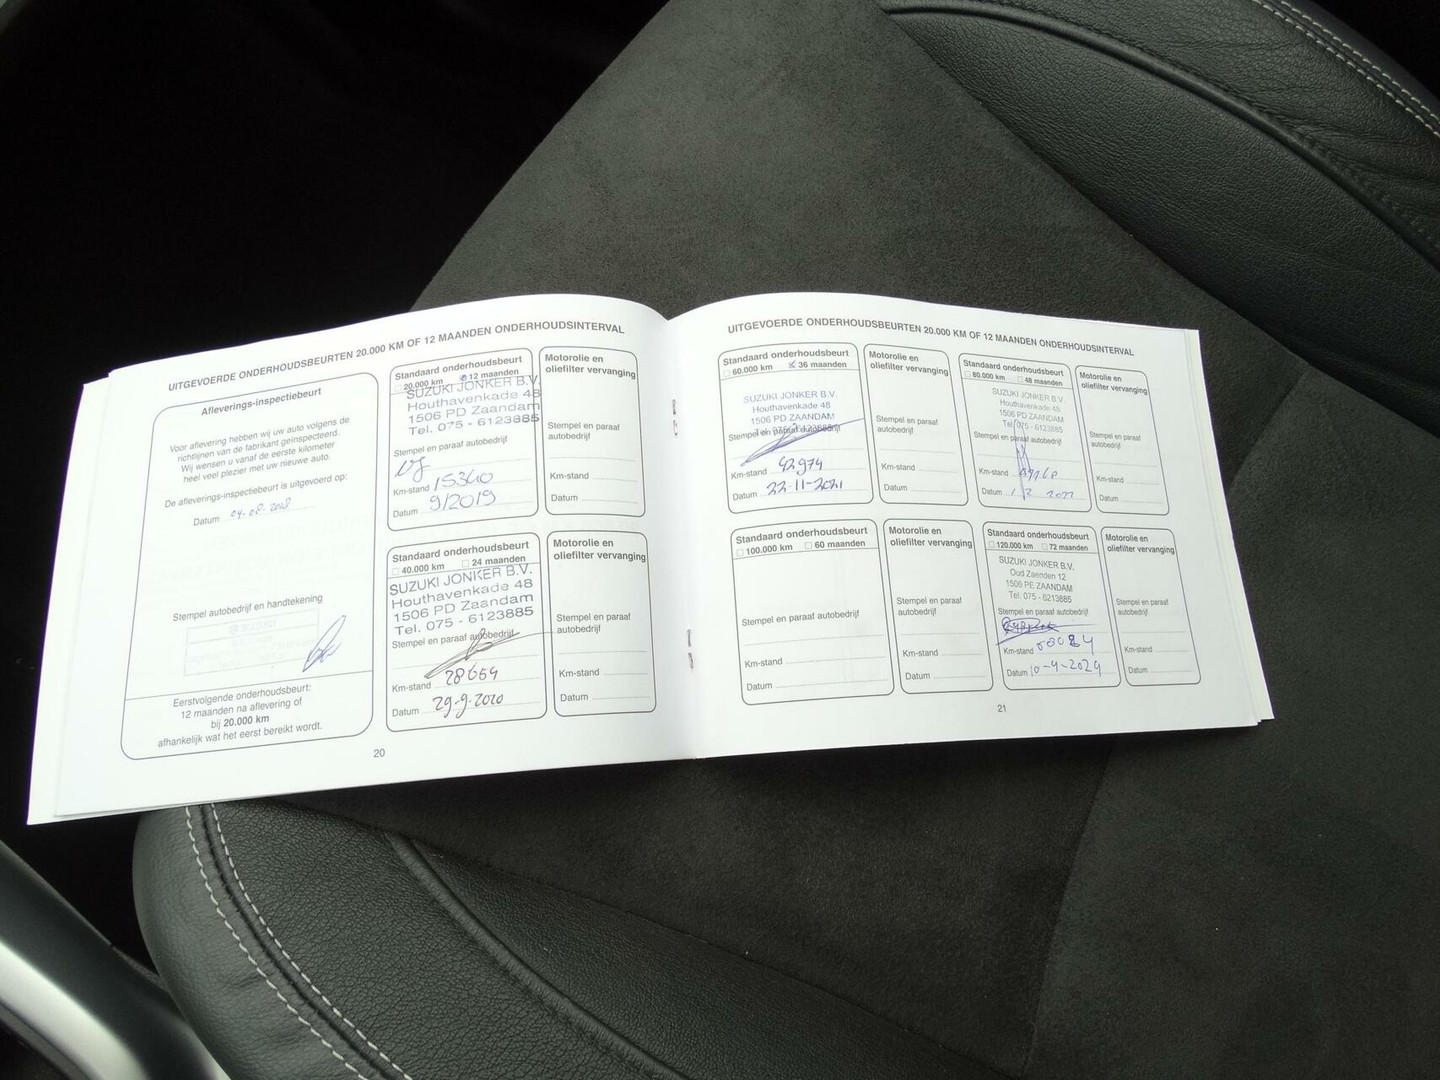 UITGEVOERDE ONDERHOUDSBEURTEN 20.000 KM OF 12 MAANDEN ONDERHOUDSINTERVAL
Afleverings-inspectiebeurt
Voor aflevering hebben wij uw auto volgens de
richtlijnen van de fabrikant geïnspecteerd.
Wij wensen u vanaf de eerste kilometer
heel veel plezier met uw nieuwe auto.
De afleverings-inspectiebeurt is uitgevoerd op:
Datum 04-08-2018
Stempel autobedrijf en handtekening
Eerstvolgende onderhoudsbeurt:
12 maanden na aflevering of
bij 20.000 km
afhankelijk wat het eerst bereikt wordt.
Standaard onderhoudsbeurt
20.000 km 12 maanden
SUZUKI JONKER B.V.
Houthavenkade 48
1506 PD Zaandam
Tel. 075 - 6123885
Stempel en paraaf autobedrijf
Km-stand 15340
Datum 9/2019
Motorolie en
oliefilter vervanging
Stempel en paraaf
autobedrijf
Km-stand
Datum
Standaard onderhoudsbeurt
40.000 km 24 maanden
SUZUKI JONKER B.V.
Houthavenkade 48
1506 PD Zaandam
Tel. 075 - 6123885
Stempel en paraaf autobedrijf
Km-stand 28654
Datum 29-9-2020
Motorolie en
oliefilter vervanging
Stempel en paraaf
autobedrijf
Km-stand
Datum
20
UITGEVOERDE ONDERHOUDSBEURTEN 20.000 KM OF 12 MAANDEN ONDERHOUDSINTERVAL
Standaard onderhoudsbeurt
60.000 km 36 maanden
SUZUKI JONKER B.V.
Houthavenkade 48
1506 PD ZAANDAM
Tel. 075-6123885
Stempel en paraaf autobedrijf
Km-stand 42974
Datum 22-11-2021
Motorolie en
oliefilter vervanging
Stempel en paraaf
autobedrijf
Km-stand
Datum
Standaard onderhoudsbeurt
80.000 km 48 maanden
SUZUKI JONKER B.V.
Houthavenkade 48
1506 PD ZAANDAM
Tel. 075 - 6123885
Stempel en paraaf autobedrijf
Km-stand
Datum 2022
Motorolie en
oliefilter vervanging
Stempel en paraaf
autobedrijf
Km-stand
Datum
Standaard onderhoudsbeurt
100.000 km 60 maanden
Stempel en paraaf autobedrijf
Km-stand
Datum
Motorolie en
oliefilter vervanging
Stempel en paraaf
autobedrijf
Km-stand
Datum
Standaard onderhoudsbeurt
120.000 km 72 maanden
SUZUKI JONKER B.V.
Oud Zaenden 12
1506 PE ZAANDAM
Tel. 075 - 6213885
Stempel en paraaf autobedrijf
Km-stand
Datum 10-4-2024
Motorolie en
oliefilter vervanging
Stempel en paraaf
autobedrijf
Km-stand
Datum
21